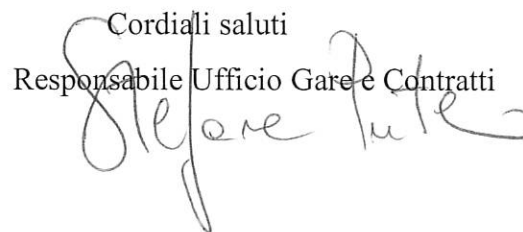 Cordiali saluti
Responsabile Ufficio Gare e Contratti